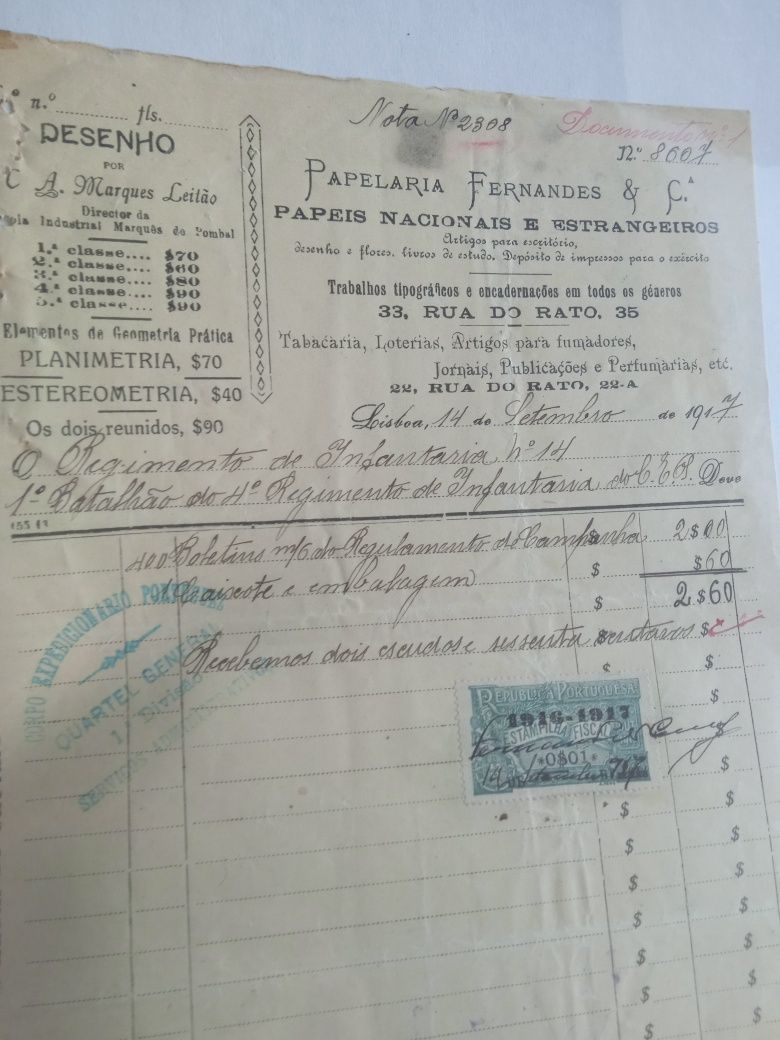 n.º ........ fls. ........
DESENHO
POR
A. Marques Leitão
Director da
Industrial Marquês de Pombal
1.ª classe.... $70
2.ª classe.... $60
3.ª classe.... $80
4.ª classe.... $90
5.ª classe.... $90
Elementos de Geometria Prática
PLANIMETRIA, $70
ESTEREOMETRIA, $40
Os dois reunidos, $90
Nota Nº 2308
Documento nº 1
N.º 8607
PAPELARIA FERNANDES & C.ª
PAPEIS NACIONAIS E ESTRANGEIROS
Artigos para escritório,
desenho e flores, livros de estudo. Depósito de impressos para o exército
Trabalhos tipográficos e encadernações em todos os géneros
33, RUA DO RATO, 35
Tabacaria, Loterias, Artigos para fumadores,
Jornais, Publicações e Perfumarias, etc.
22, RUA DO RATO, 22-A
Lisboa, 14 de Setembro de 1917
O Regimento de Infantaria Nº 14
1º Batalhão do 4º Regimento de Infantaria do C.E.P. Deve
400 Boletins m/6 do Regulamento de Campanha $ 2$00
1 Caixote e embalagem $ $60
$ 2$60
Recebemos dois escudos e sessenta centavos $
CORPO EXPEDICIONARIO PORTUGUEZ
QUARTEL GENERAL
1.ª Divisão
SERVIÇOS ADMINISTRATIVOS
REPUBLICA PORTUGUESA
1916-1917
ESTAMPILHA FISCAL
*0$01*